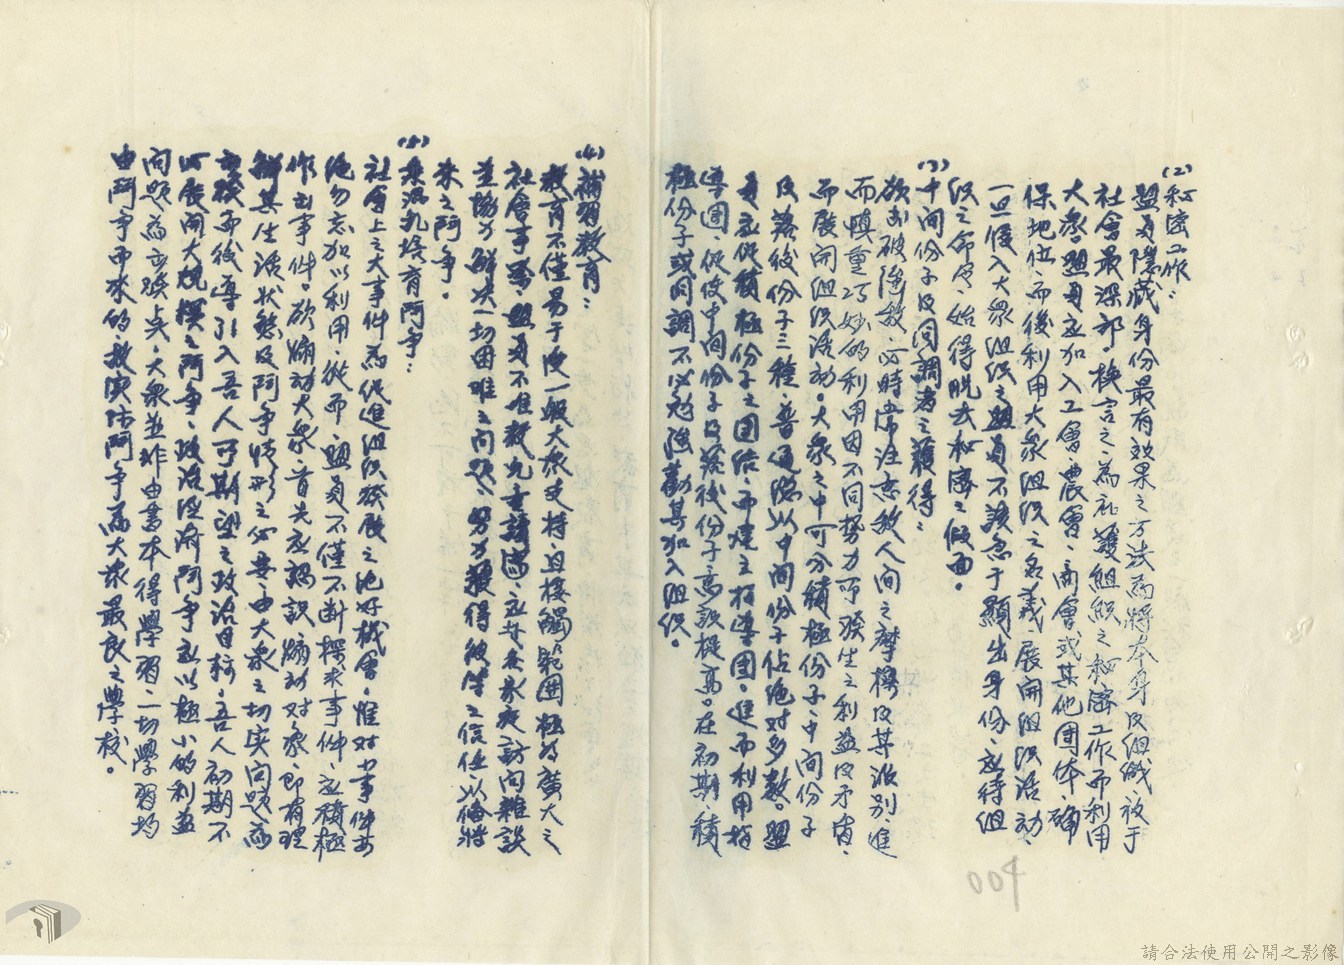 (2)秘密工作：
盟員隱藏身份最有效果之方法為將本身及組織、放于
社會最深部。換言之、為祕護組織之秘密工作而利用
大眾。盟員应加入工會、農會、商會或其他団体、確
保地位、而後利用大眾組織之名義、展開組织活动、
一旦侵入大眾組织之盟員不該急于顯出身份、应待組
织之命令、始得脫去秘密之假面。
(3)中间份子及同調者之獲得：
欲求破除敵、必時常注意敵人间之摩擦及其派别、進
而慎重巧妙的利用因不同势力而發生之利益及矛盾、
而展開組织活动。大眾之中可分積極份子、中间份子
及落後份子三種、普通認以中间份子佔绝对多数。盟
員应促積極份子之團结、而建立指導團、進而利用指
導團、促使中间份子及落後份子意識提高。在初期、積
極份子或同調不必勉強勸其加入組织。
(4)補習教育：
教育不僅易于受一般大眾支持、且接觸範囲極为廣大之
社會事業、盟員不惟教九重講滿、应於各家庭訪问雜談
並協力解决一切困难之问题、努力獲得彼等之信任、以備將
来之阿争。
(5)発掘扎培育阿争：
社會上之大事件為促進組织發展之絶好机會、惟对小事件亦
绝勿忘加以利用、從而、盟員不僅不断探求事件、应積極
作出事件。欲煽动大眾、首先应認識煽动对象、即有理
解其生活狀態及阿争情形之必要、由大眾之切实问题為
出發而後導引入吾人可期望之政治目标、吾人初期不
必展開大規模之阿争、政治经济阿争应以極小的利益
问题為出發点、大眾並非由書本得學習、一切學習均
由阿争中求的、教演陈阿争為大眾最良之學校。
400
請合法使用公開之影像